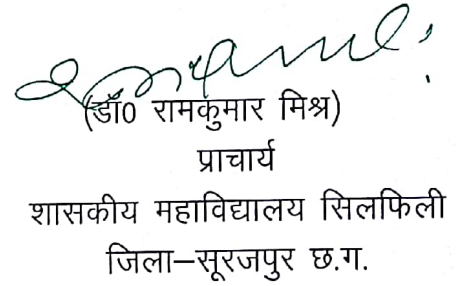 (डॉ0 रामकुमार मिश्र)
प्राचार्य
शासकीय महाविद्यालय सिलफिली
जिला–सूरजपुर छ.ग.